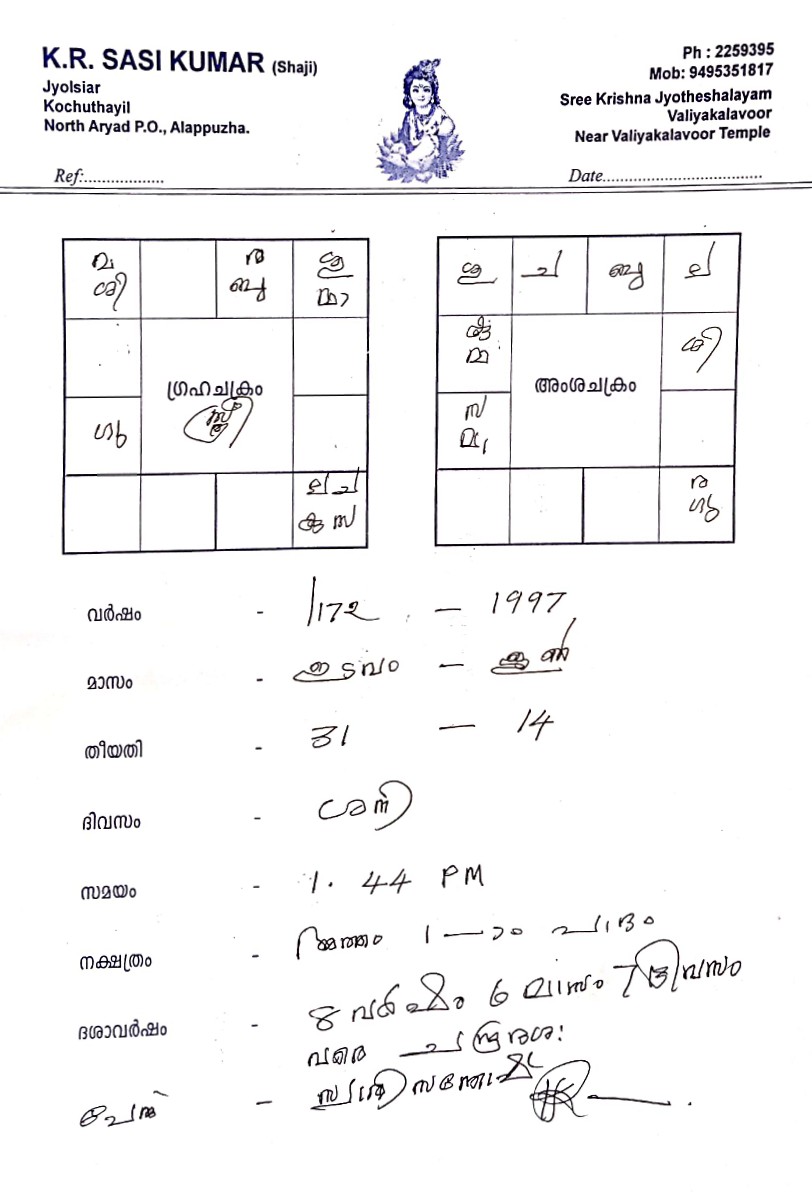 K.R. SASI KUMAR (Shaji)
Jyolsiar
Kochuthayil
North Aryad P.O., Alappuzha.
Ph : 2259395
Mob: 9495351817
Sree Krishna Jyotheshalayam
Valiyakalavoor
Near Valiyakalavoor Temple
Ref:...................
Date.....................................
ര ശു
ശി ബു മാ
ഗ്രഹചക്രം
സ്ത്രീ
ഗു
ല ച
കു സ
ശു ച ബു ല
മ ശി
അംശചക്രം
സ
ര
ഗു
വർഷം - 1172 - 1997
മാസം - ഇടവം - ജൂൺ
തീയതി - 31 - 14
ദിവസം - ശനി
സമയം - 1. 44 PM
നക്ഷത്രം - അത്തം 1-ാം പാദം
ദശാവർഷം - 8 വർഷം 6 മാസം 7 ദിവസം
വരെ ചന്ദ്രദശ:
പേര് -